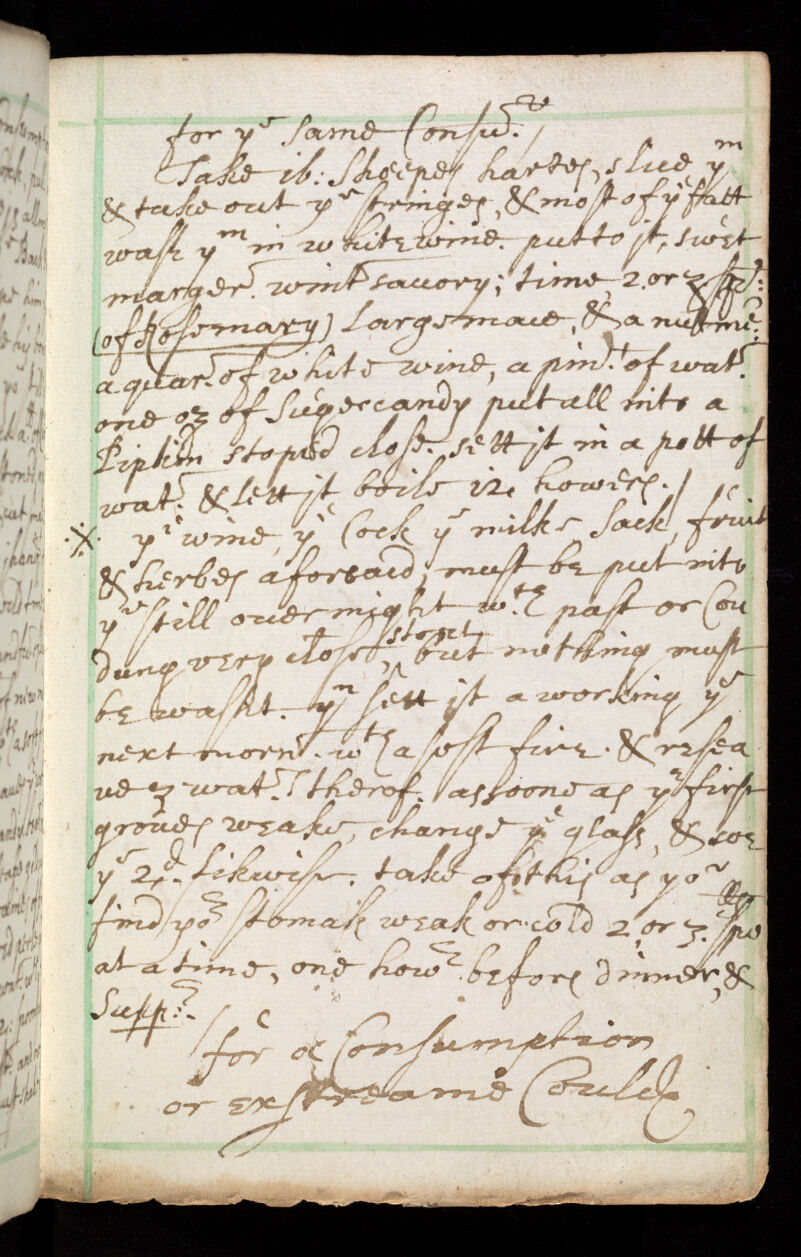 for yͤ same Consu:
Take i6: Sheepes hartes, slice yᵐ
& take out yͤ stringes, & most of yͤ fatt
wash yᵐ in white wine. put to it, swet
marger: wintʳ savory; time 2. or 3. sp:
(of Rosemary) Large mace, & a nutme:
a quar: of white wine, a pin: of wat:
one oz of Sugercandy put all into a
Pipkin stoped close. sett it in a pott of
wat: & lett it boile i2 howers. /
·※· yͤ wine, yͤ Cock yͤ milke Sack, fruit
& herbes aforsaid, must be put into
yͤ still over night wᵗʰ past or Cou
dung very close stopt, but nothing must
be washt. yⁿ sett it a working yͤ
next morn: wᵗʰ a soft fire. & resea
ue 3 wat: therof. assoone as yͤ first
groues weake, change yͤ glass, & soe
yͤ 2ᵈ. likwise. take of this as yoʳ
find yoʳ stomak weak or cold 2, or 3. spo
at a time, one howʳ before dinner, &
Supp:
for a Consumption
or exstreame Could